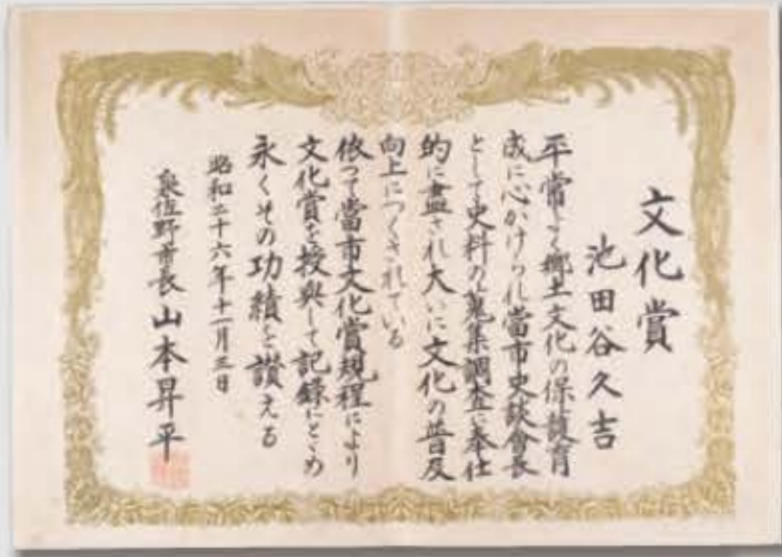 文化賞
池田谷久吉
平常よく郷土文化の保護育
成に心かけられ當市史談會長
として史料の蒐集調査に奉仕
的に盡され大いに文化の普及
向上につくされている
依つて當市文化賞規程により
文化賞を授與して記録にとゞめ
永くその功績を讃える
昭和二十六年十一月三日
泉佐野市長 山本昇平